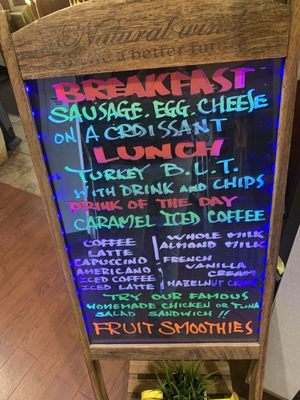 Natural wise
a better
BREAKFAST
SAUSAGE. EGG. CHEESE
ON A CROISSANT
LUNCH
TURKEY B.L.T.
WITH DRINK AND CHIPS
DRINK OF THE DAY
CARAMEL ICED COFFEE
COFFEE
LATTE
CAPUCCINO
AMERICANO
ICED COFFEE
ICED LATTE
WHOLE MILK
ALMOND MILK
FRENCH
VANILLA
CREAM
HAZELNUT CREAM
TRY OUR FAMOUS
HOMEMADE CHICKEN OR TUNA
SALAD SANDWICH !!
FRUIT SMOOTHIES